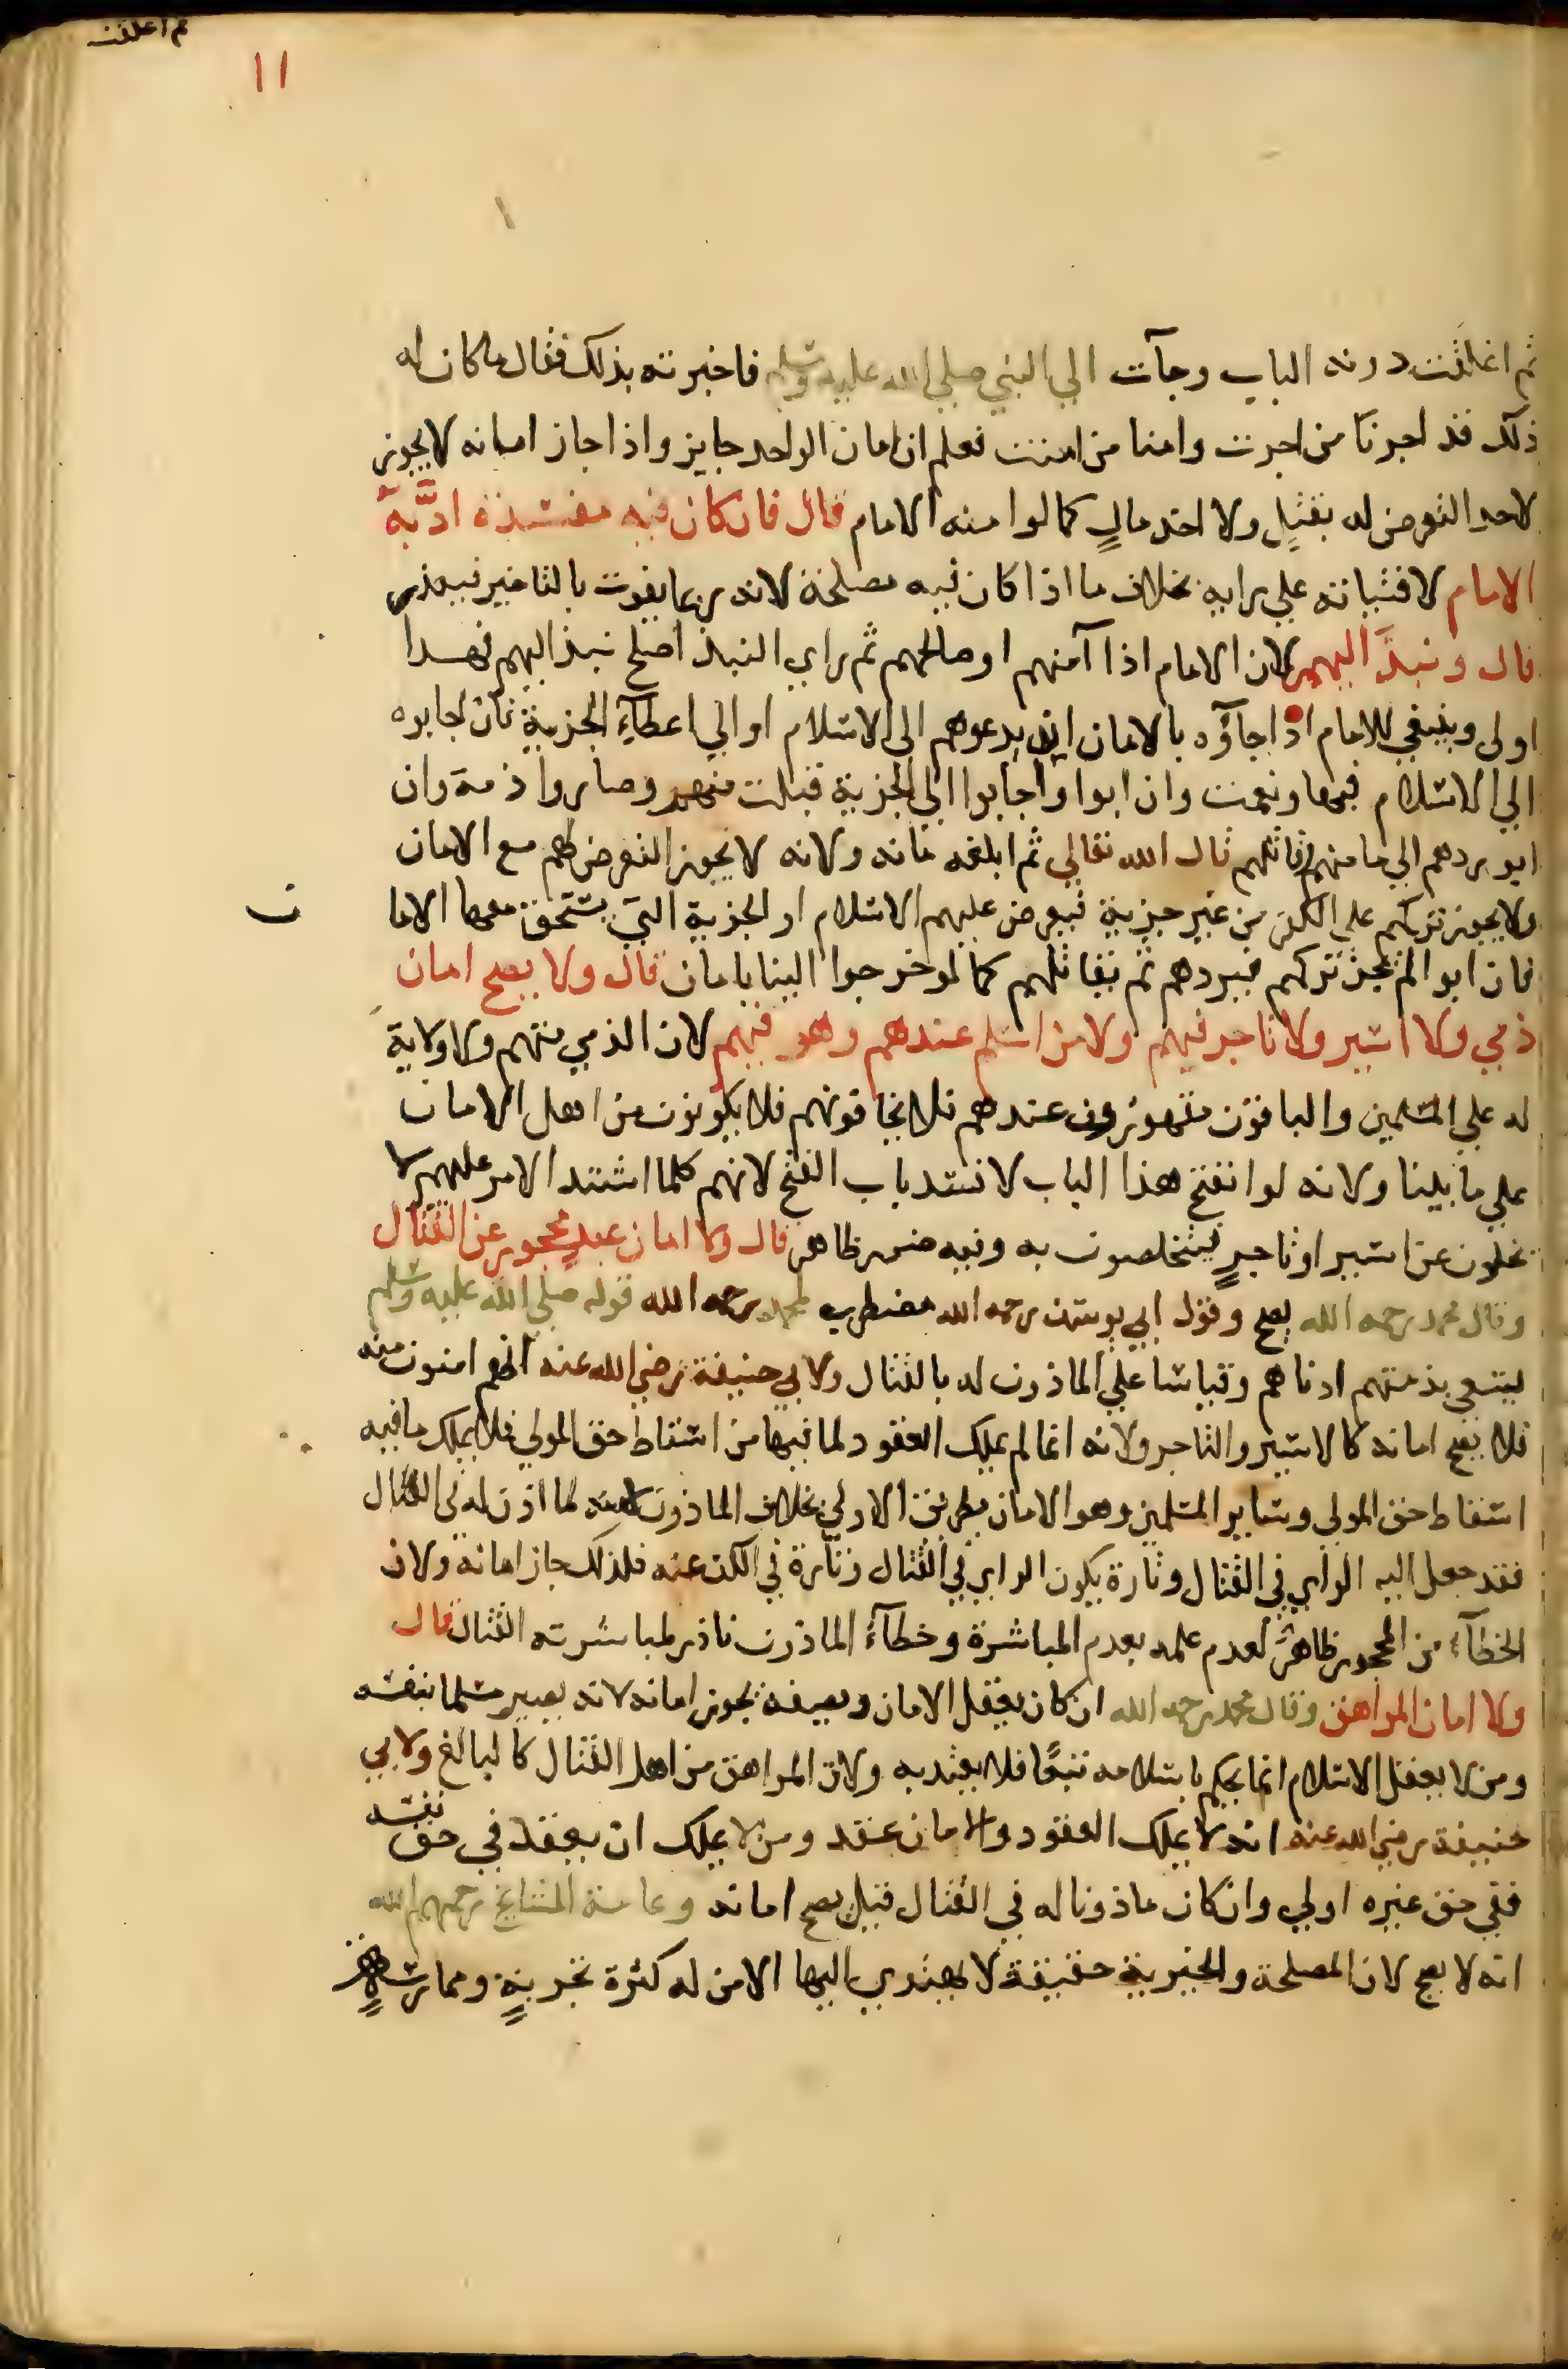 ثم اغلقت
١١
ثم اغلقت دونه الباب وجآت الي النبي صلي الله عليه وسلم فاخبرته بذلك فقال ما كان له
ذلك قد اجرنا من اجرت وامنا من امنت فعلم ان امان الواحد جايز واذا جاز امانه لا يجوز
لاحد التعرض له بقتلٍ ولا اخذ مالٍ كما لو امنه الامام قال فان كان فيه مفسدة ادَّبه
الامام لافتياته علي رايه بخلاف ما اذا كان فيه مصلحة لانه ربما يفوت بالتاخير فيعذر
قال ونبذَ اليهم لان الامام اذا آمنهم او صالحهم ثم راي النبذ اصلح نبذ اليهم فهذا
اولى وينبغي للامام اذا جاؤه بالامان ان يدعوهم الى الاسلام او الي اعطاءِ الجزية فان اجابوه
الي الاسلام فبها ونعمت وان ابوا واجابوا الي الجزية قبلت منهم وصاروا ذمة وان
ابو يردهم الي مامنهم وقاتلهم قال الله تعالي ثم ابلغه مامنه ولانه لا يجوز التعرض لهم مع الامان
ولا يجوز تركهم علي الكفر من غير جزية فيعرض عليهم الاسلام او الجزية التي يستحق معها الاما
ن
فان ابوا لم يجز تركهم فيردهم ثم يقاتلهم كما لو خرجوا الينا بامان قال ولا يصح امان
ذمي ولا اسير ولا تاجر فيهم ولا من اسلم عندهم وهو فيهم لان الذمي متهم ولا ولاية
له علي المسلمين والباقون مقهورون عندهم فلا يخافونهم فلا يكونون من اهل الامان
علي ما بينا ولانه لو انفتح هذا الباب لانسد باب الفتح لانهم كلما اشتد الامر عليهم لا
يخلون عن اسير او تاجرٍ فيتخلصون به وفيه ضرر ظاهر قال ولا امان عبدٍ محجور عن القتال
وقال محمد رحمه الله يصح وقول ابي يوسف رحمه الله مضطرب لمحمد رحمه الله قوله صلي الله عليه وسلم
ليسعي بذمتهم ادناهم وقياسا علي الماذون له بالقتال ولابي حنيفة رضي الله عنه انهم امنون منه
فلا يصح امانه كالاسير والتاجر ولانه انما لم يملك العقود لما فيها من اسقاط حق المولي فلا يملك ما فيه
اسقاط حق المولي وساير المسلمين وهو الامان بطريق الاولي بخلاف الماذون لانه لما اذن له في القتال
فقد جعل اليه الراي في القتال وتارة يكون الراي في القتال وتارة في الكف عنه فلذلك جاز امانه ولان
الخطآء من المحجور ظاهرٌ لعدم علمه بعدم المباشرة وخطآءُ الماذون نادر لمباشرته القتال قال
ولا امان المراهق وقال محمد رحمه الله ان كان يعقل الامان ويصفه يجوز امانه لانه يصير مسلما بنفسه
ومن لا يعقل الاسلام انما يحكم باسلامه تبعًا فلا يعتد به ولان المراهق من اهل القتال كالبالغ ولابي
حنيفة رضي الله عنه انه لا يملك العقود والامان عقد ومن لا يملك ان يعقد في حق نفسه
ففي حق غيره اولي وان كان ماذونا له في القتال قيل يصح امانه وعامة المشايخ رحمهم الله
انه لا يصح لان المصلحة والخيرية حقيقة لا يهتدي اليها الا من له كثرة تجربةٍ وممارسةٍ